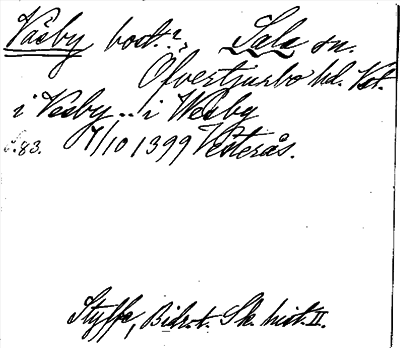 Väsby bost.? Sala sn.
Öfvertjurbo hd. Vst.
i Vesby .. i Wesby
s. 83. 7/10 1399 Vesterås.
Styffe, Bidr. t. Sk. hist. II.